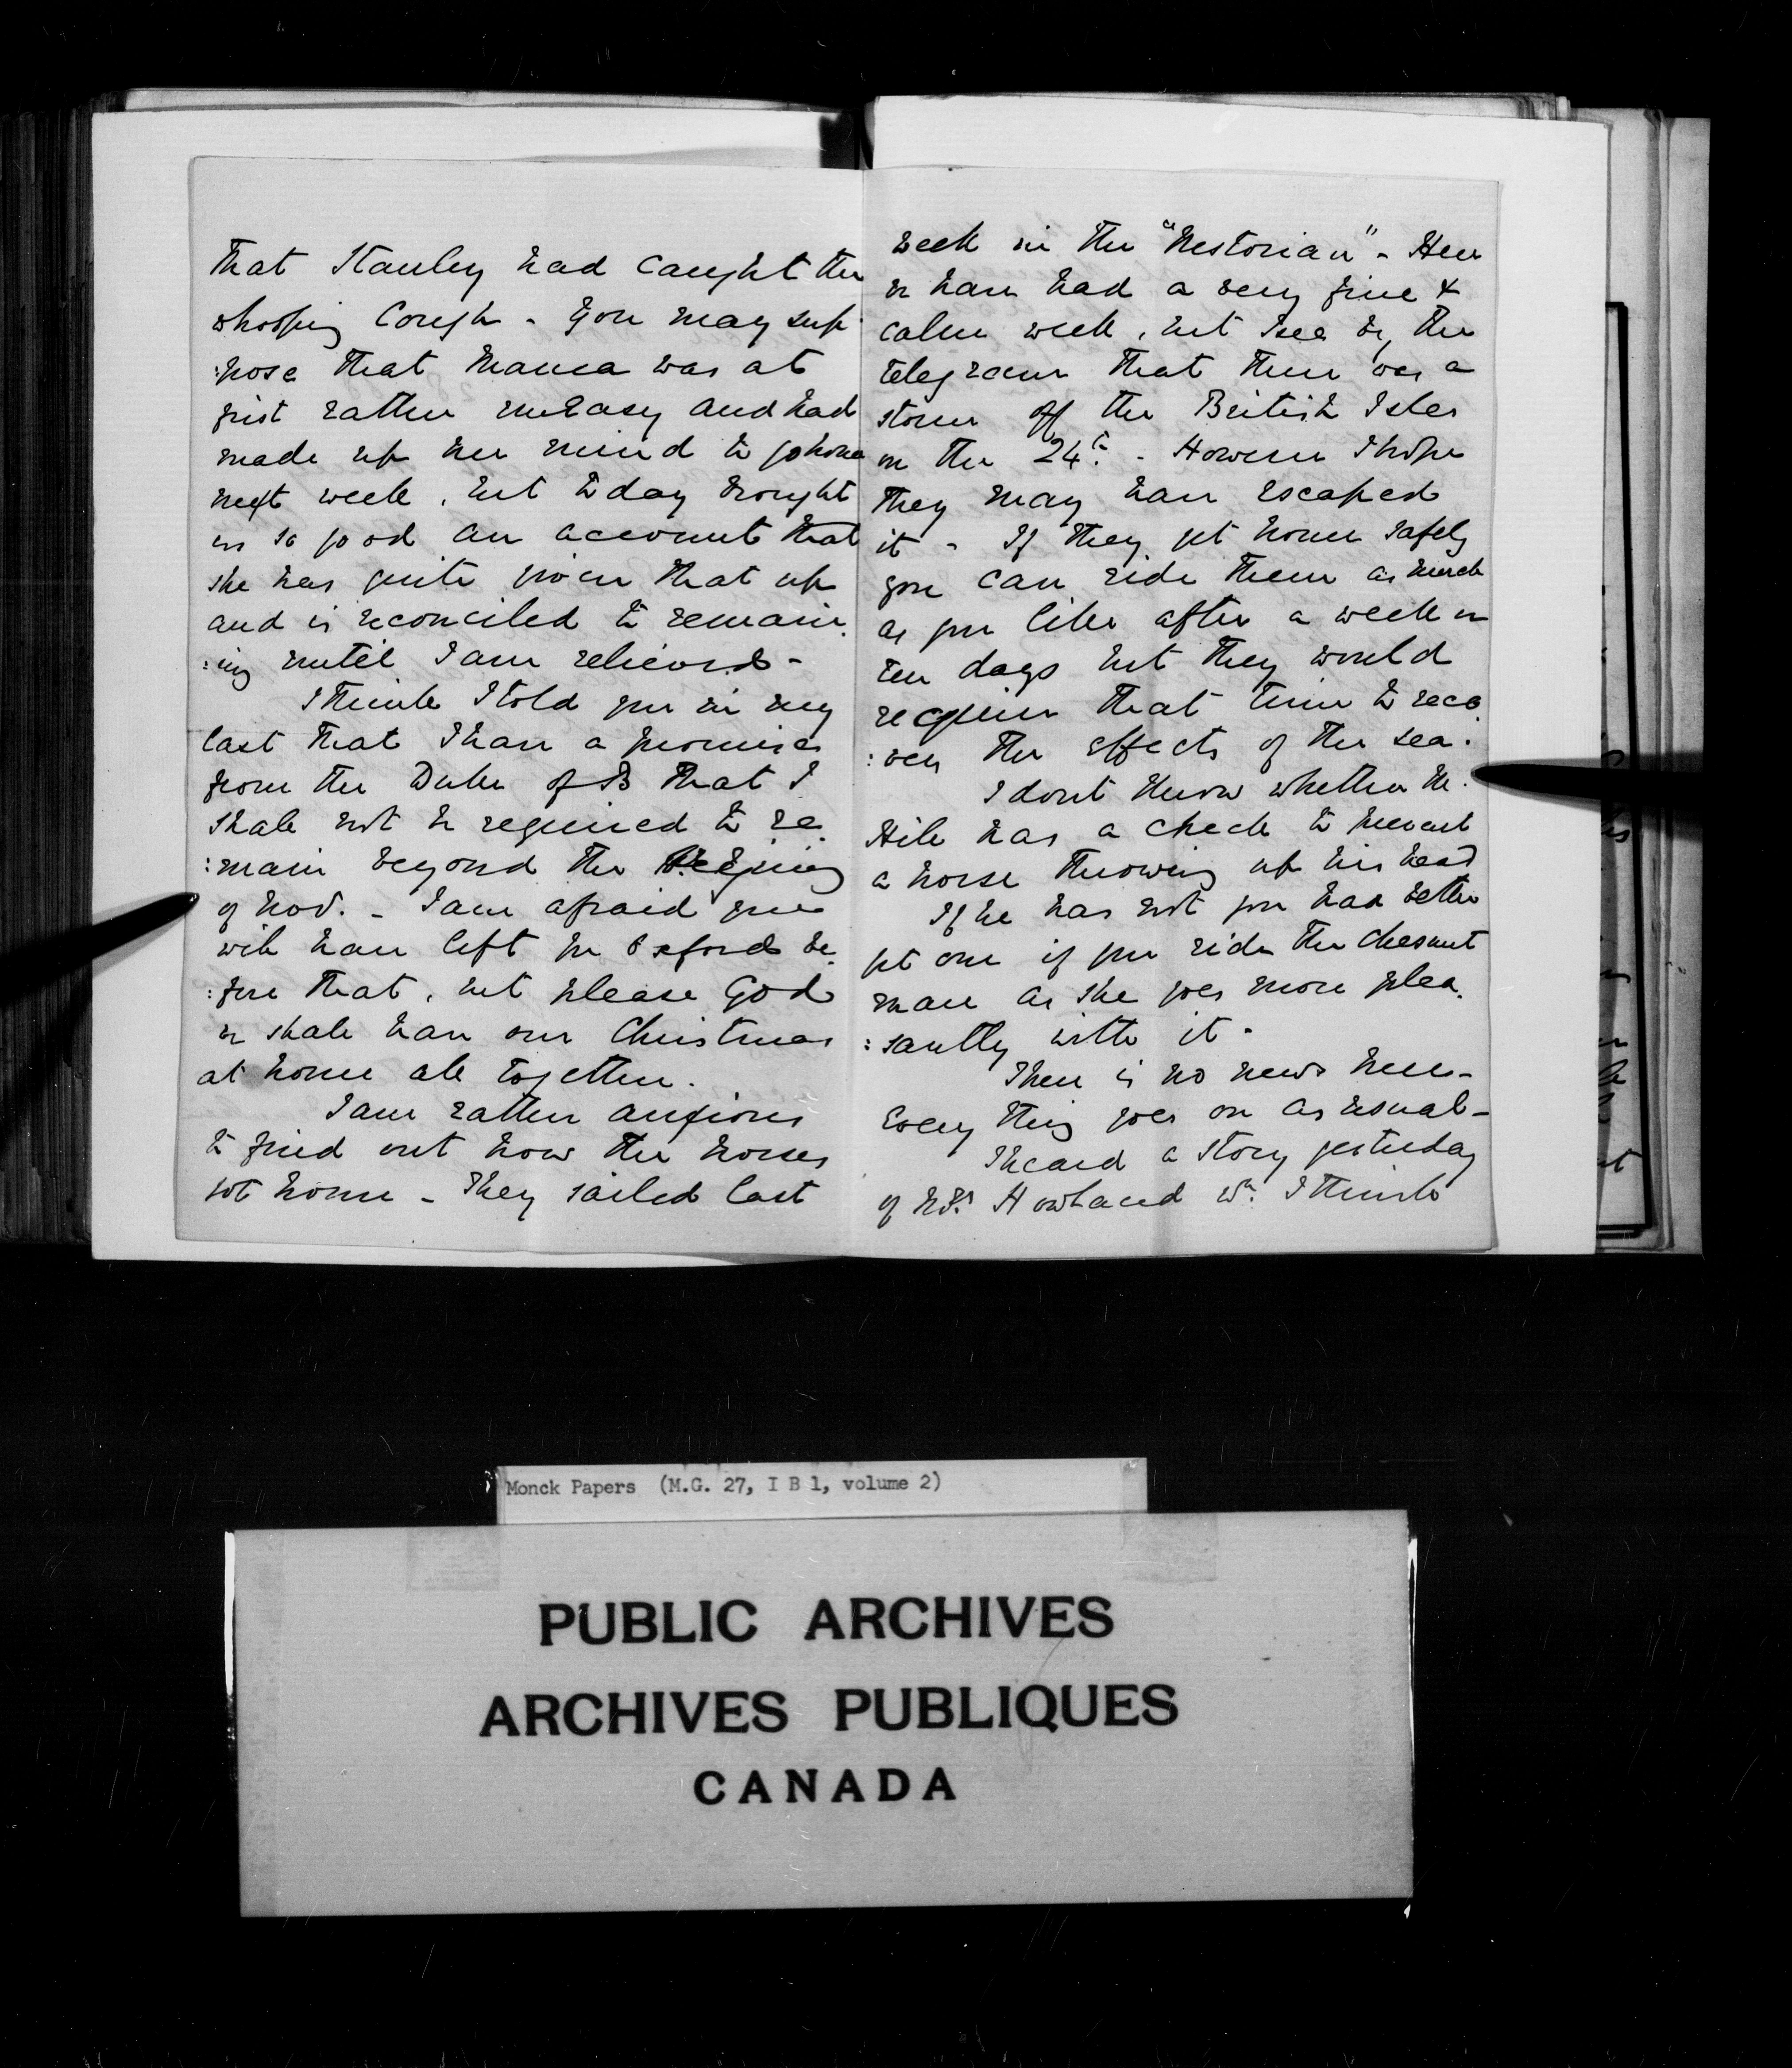 that Stanley had caught the
whooping Cough - You may sup
:pose that Mama was at
first rather uneasy and had
made up her mind to go home
next week, but to day brought
us so good an account that
she has quite given that up
and is reconciled to remain
:ing until I am relieved -
I think I told you in my
last that I have a promise
from the Duke of B that I
shall not be required to re
:main beyond the begining
of Nov. - I am afraid you
will have left for Oxford be
:fore that, but please God
we shall have our Christmas
at home all together.
I am rather anxious
to find out how the horses
got home - They sailed last
week in the "Nestorian" - Here
we have had a very fine &
calm week, but I see by the
telegram that there was a
storm off the British Isles
on the 24th - However I hope
they may have escaped
it - If they get home safely
you can ride them as much
as you like after a week or
ten days but they would
require that time to reco
:ver the effects of the sea.
I dont know whether Mr.
Hill has a check to prevent
a horse throwing up his head
If he has not you had better
get one if you ride the chesnut
mare as she goes more plea
:santly with it -
There is no news here -
Every thing goes on as usual -
I heard a story yesterday
of Mrs. Howland wh. I think
Monck Papers (M.G. 27, I B 1, volume 2)
PUBLIC ARCHIVES
ARCHIVES PUBLIQUES
CANADA